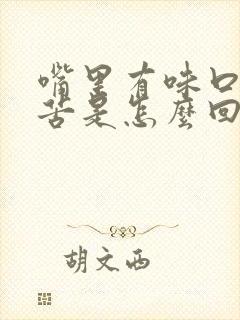 嘴里有味口
苦是怎麽回
胡文西